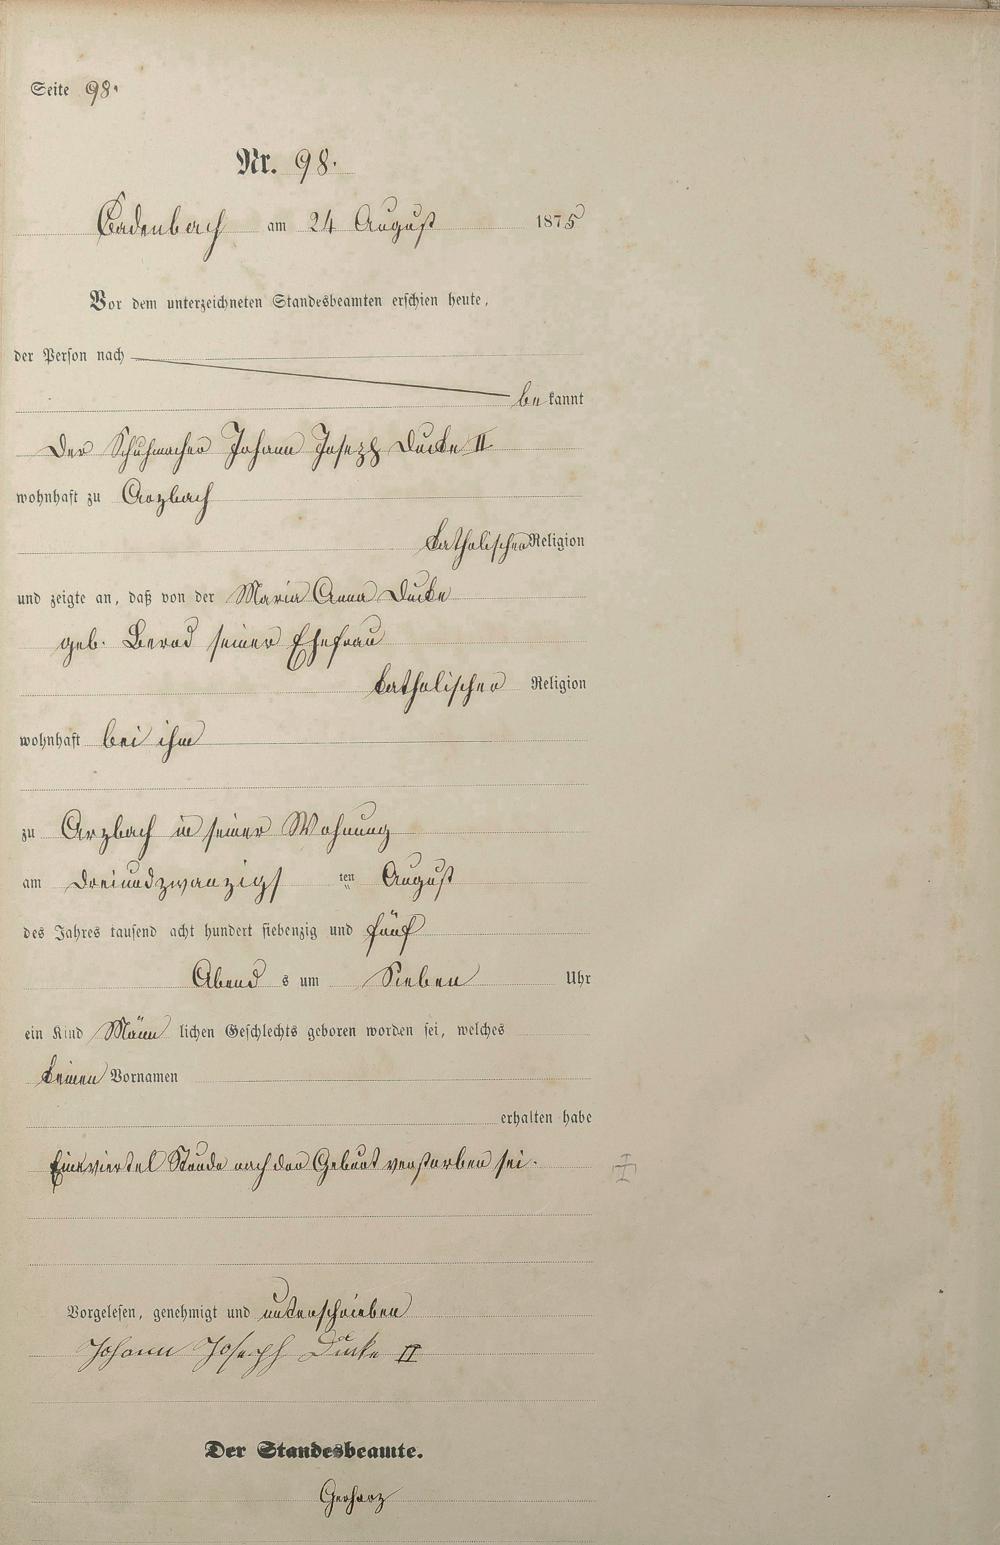 Seite 98.
Nr. 98.
Cadenbach am 24 August 1875
Vor dem unterzeichneten Standesbeamten erschien heute,
der Person nach
bekannt
der Schuhmacher Johann Joseph Ducke II
wohnhaft zu Arzbach
katholischer Religion
und zeigte an, daß von der Maria Anna Ducke
geb. Bernd seiner Ehefrau
katholischer Religion
wohnhaft bei ihm
zu Arzbach in seiner Wohnung
am dreiundzwanzigs ten August
des Jahres tausend acht hundert siebenzig und fünf
Abend s um Sieben Uhr
ein Kind Männ lichen Geschlechts geboren worden sei, welches
keinen Vornamen
erhalten habe
Eineviertel Stunde nach der Geburt verstorben sei.
Vorgelesen, genehmigt und unterschrieben
Johann Joseph Ducke II
Der Standesbeamte.
Gerharz